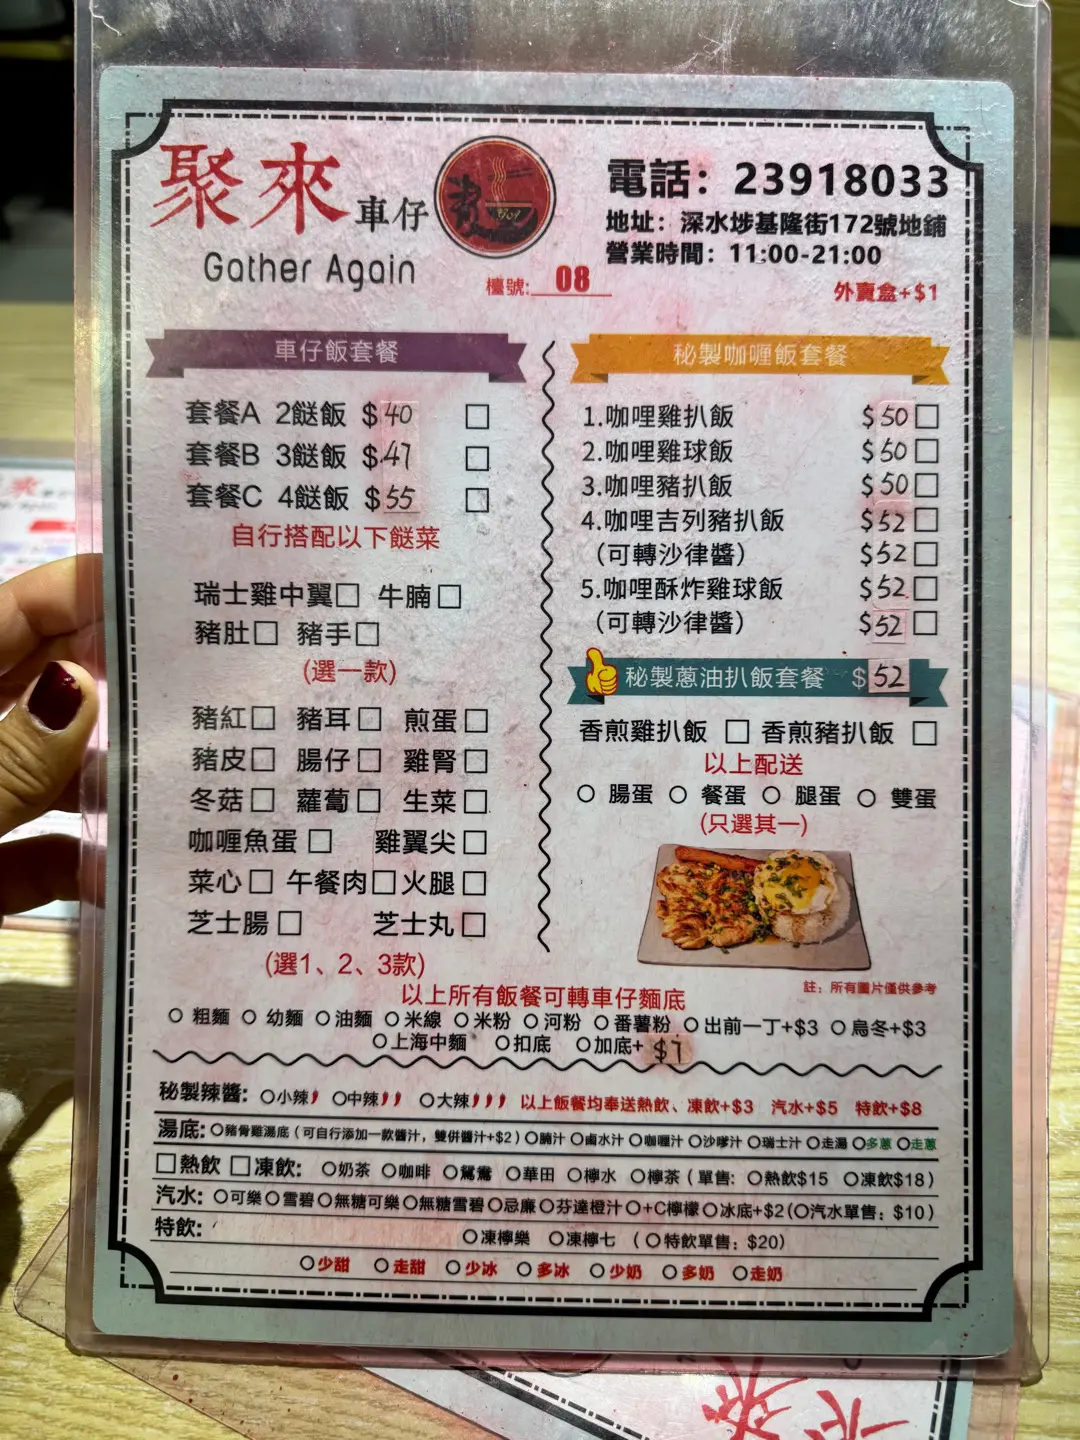 聚來車仔
Gather Again
電話：23918033
地址：深水埗基隆街172號地鋪
營業時間：11:00-21:00
檯號: 08
外賣盒+$1
車仔飯套餐
套餐A 2餸飯 $40 □
套餐B 3餸飯 $47 □
套餐C 4餸飯 $55 □
自行搭配以下餸菜
瑞士雞中翼□ 牛腩□
豬肚□ 豬手□
(選一款)
豬紅□ 豬耳□ 煎蛋□
豬皮□ 腸仔□ 雞腎□
冬菇□ 蘿蔔□ 生菜□
咖喱魚蛋□ 雞翼尖□
菜心□ 午餐肉□ 火腿□
芝士腸□ 芝士丸□
(選1、2、3款)
秘製咖喱飯套餐
1.咖哩雞扒飯 $50□
2.咖哩雞球飯 $50□
3.咖哩豬扒飯 $50□
4.咖哩吉列豬扒飯 $52□
（可轉沙律醬） $52□
5.咖哩酥炸雞球飯 $52□
（可轉沙律醬） $52□
秘製蔥油扒飯套餐 $52
香煎雞扒飯 □ 香煎豬扒飯 □
以上配送
○ 腸蛋 ○ 餐蛋 ○ 腿蛋 ○ 雙蛋
(只選其一)
註：所有圖片僅供參考
以上所有飯餐可轉車仔麵底
○ 粗麵 ○ 幼麵 ○油麵 ○米線 ○米粉 ○河粉 ○番薯粉 ○出前一丁+$3 ○烏冬+$3
○上海中麵 ○扣底 ○加底+ $7
秘製辣醬: ○小辣 ○中辣 ○大辣 以上飯餐均奉送熱飲、凍飲+$3 汽水+$5 特飲+$8
湯底: ○豬骨雞湯底（可自行添加一款醬汁，雙併醬汁+$2）○腩汁 ○鹵水汁 ○咖喱汁 ○沙嗲汁 ○瑞士汁 ○走湯 ○多蔥 ○走蔥
□熱飲 □凍飲: ○奶茶 ○咖啡 ○鴛鴦 ○華田 ○檸水 ○檸茶（單售: ○熱飲$15 ○凍飲$18）
汽水: ○可樂○雪碧○無糖可樂○無糖雪碧○忌廉○芬達橙汁○+C檸檬○冰底+$2(○汽水單售: $10）
特飲: ○凍檸樂 ○凍檸七 （○特飲單售: $20）
○少甜 ○走甜 ○少冰 ○多冰 ○少奶 ○多奶 ○走奶